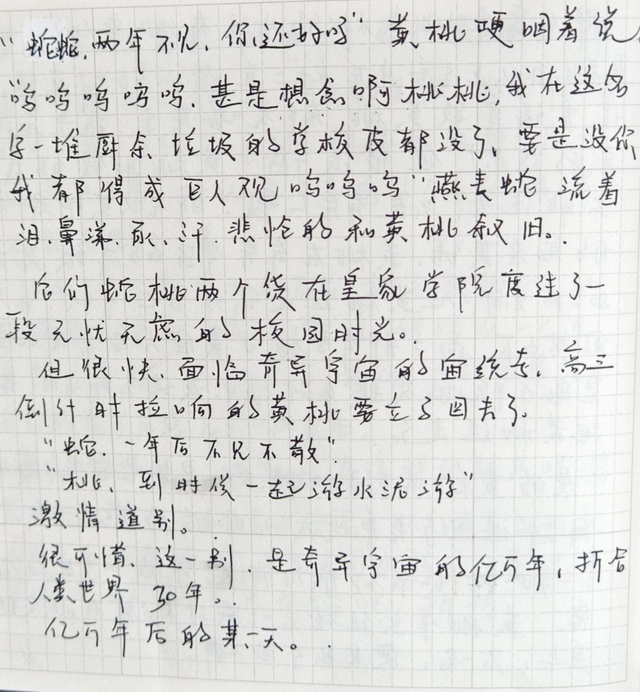 “蛇蛇，两年不见，你还好吗”黄桃哽咽着说
“呜呜呜呜呜，甚是想念啊桃桃，我在这名
字一堆厨余垃圾的学校皮都没了，要是没你
我都得成巨人观呜呜呜”燕麦蛇流着
泪、鼻涕、尿、汗，悲怆的和黄桃叙旧。
后们蛇桃两个货在皇家学院度过了一
段无忧无虑的校园时光。
但很快，面临奇异宇宙的宙统考，高三
倒计时拉响的黄桃要立了回去了。
“蛇，一年后不见不散”
“桃，到时候一起游水泥游”
激情道别。
很可惜，这一别，是奇异宇宙的亿万年，折合
人类世界30年。
亿万年后的某一天。